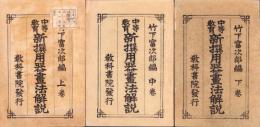 中等教育
新撰用器畫法解説
上卷
教科書院發行
竹下富次郎編 中卷
中等教育
新撰用器畫法解説
教科書院發行
竹下富次郎編 下卷
中等教育
新撰用器畫法解説
教科書院發行